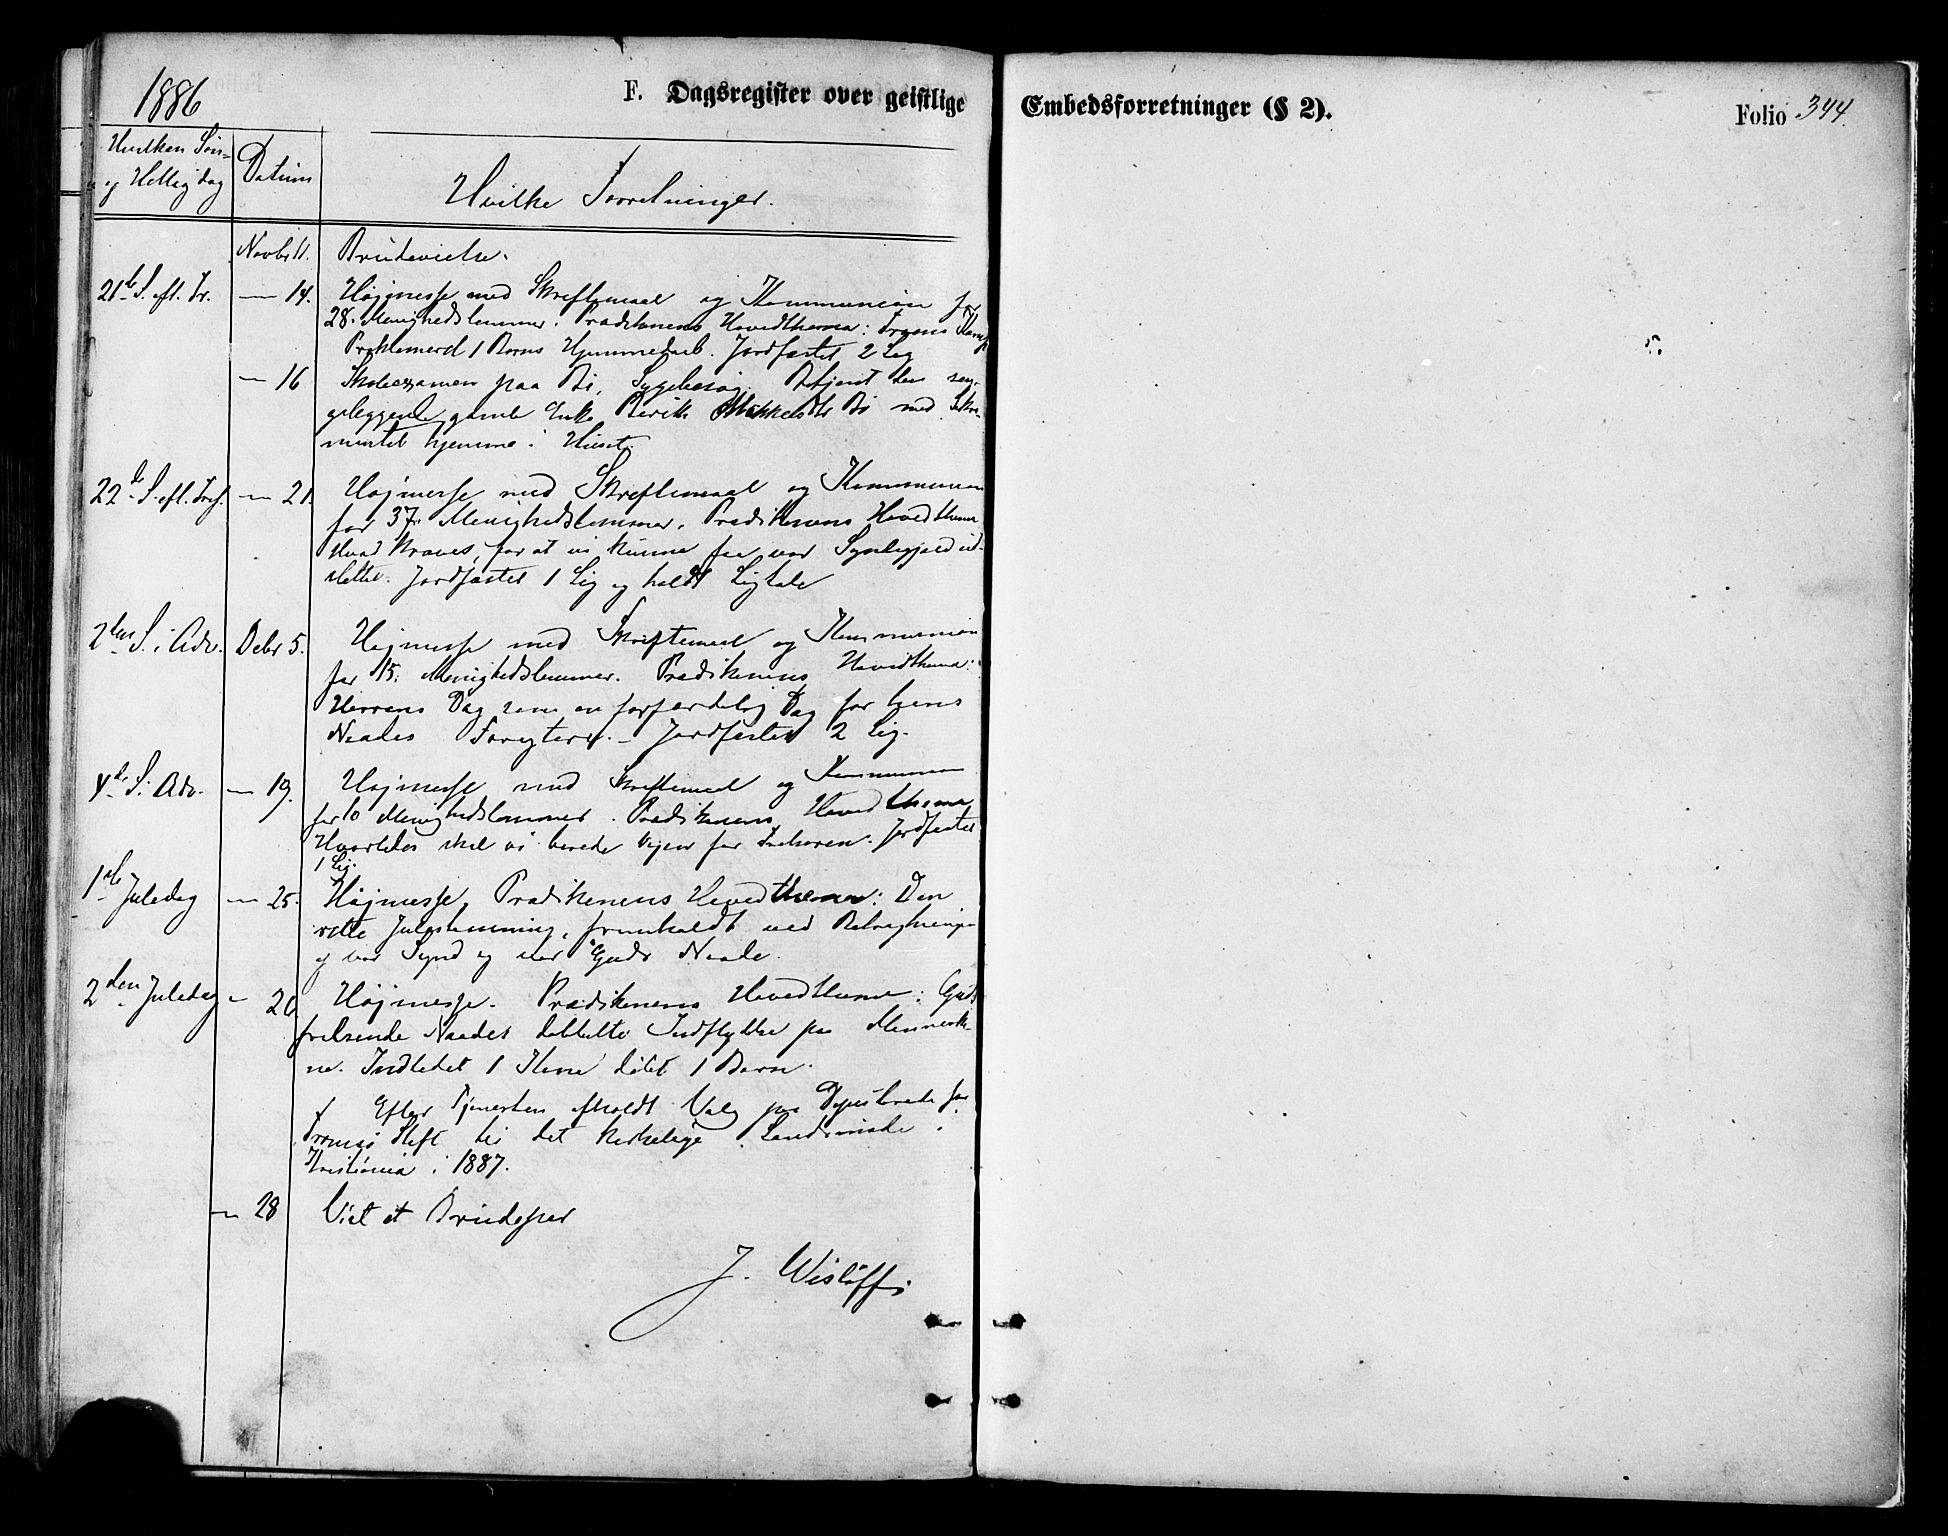 1886
F. Dagsregister over geistlige Embedsforretninger (§ 2).
Folio 344.
Hvilken Søn-
og Hellig dag
Datum
Hvilke Forretninger.
Novbr 11. Brudevielse.
21de S. eft. Tr. — 14. Højmesse med Skriftemaal og Kommunion for
28. Menighedslemmer. Prædikenens Hovedthema: Troens Kamp
Proklameret 1 Barns Hjemmedaab. Jordfæstet 2 Lig
— 16 Skoleexamen paa Bø, Sygebesøg. Betjent den sen-
geliggende gamle Enke Bø med Sakra-
mentet hjemme i Huset.
22de S. eft. Tref. — 21. Højmesse med Skriftemaal og Kommunion
for 37. Menighedslemmer. Prædikenens Hovedthema
Hvad kræves, for at vi kunne faa vor Syndegjæld ud-
slettet. Jordfæstet 1 Lig og holdt Ligtale
2den S. i Adv. Debr 5. Højmesse med Skriftemaal og Kommunion
for 15. Menighedslemmer. Prædikenens Hovedthema:
Herrens Dag som en forfærdelig Dag for hans
Naades Foragtere. — Jordfæstet 2 Lig.
4de S. i Adv. — 19. Højmesse med Skriftemaal og Kommunion
for 10 Menighedslemmer. Prædikenens Hovedthema
Hvorledes skal vi berede Vejen for Frelseren. Jordfæstet
1 Lig.
1ste Juledag — 25. Højmesse, Prædikenens Hovedthema: Den
rette Julestemning, fremholdt ved Betragtningen
af vor Synd og stor Guds Naade.
2den Juledag — 26. Højmesse. Prædikenens Hovedthema: Guds
frelsende Naades dobbelte Indflydelse paa Menneske-
ne. Indledet 1 Kone døbt 1 Barn.
Efter Tjenesten afholdt Valg paa Deputerede for
Tromsø Stift til det kirkelige Landsmøde i
Kristiania i 1887.
— 28 Viet et Brudepar
J. Wisløff